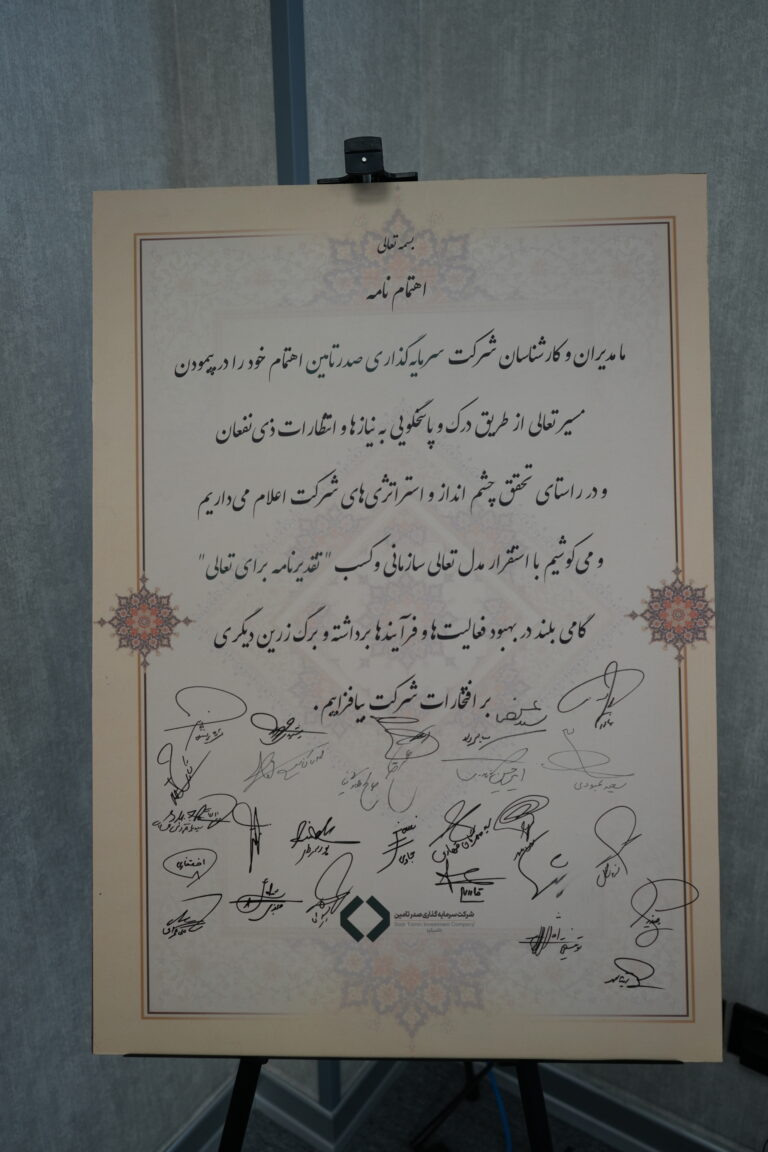 بسمه تعالی
اهتمام نامه
ما مدیران و کارشناسان شرکت سرمایه گذاری صدر تامین اهتمام خود را در پیمودن
مسیر تعالی از طریق درک و پاسخگویی به نیازها و انتظارات ذی نفعان
و در راستای تحقق چشم انداز و استراتژی های شرکت اعلام می داریم
و می کوشیم با استقرار مدل تعالی سازمانی و کسب "تقدیرنامه برای تعالی"
گامی بلند در بهبود فعالیت ها و فرآیندها برداشته و برگ زرین دیگری
بر افتخارات شرکت بیافزاییم.
شرکت سرمایه گذاری صدر تامین
Sadr Tamin Investment Company